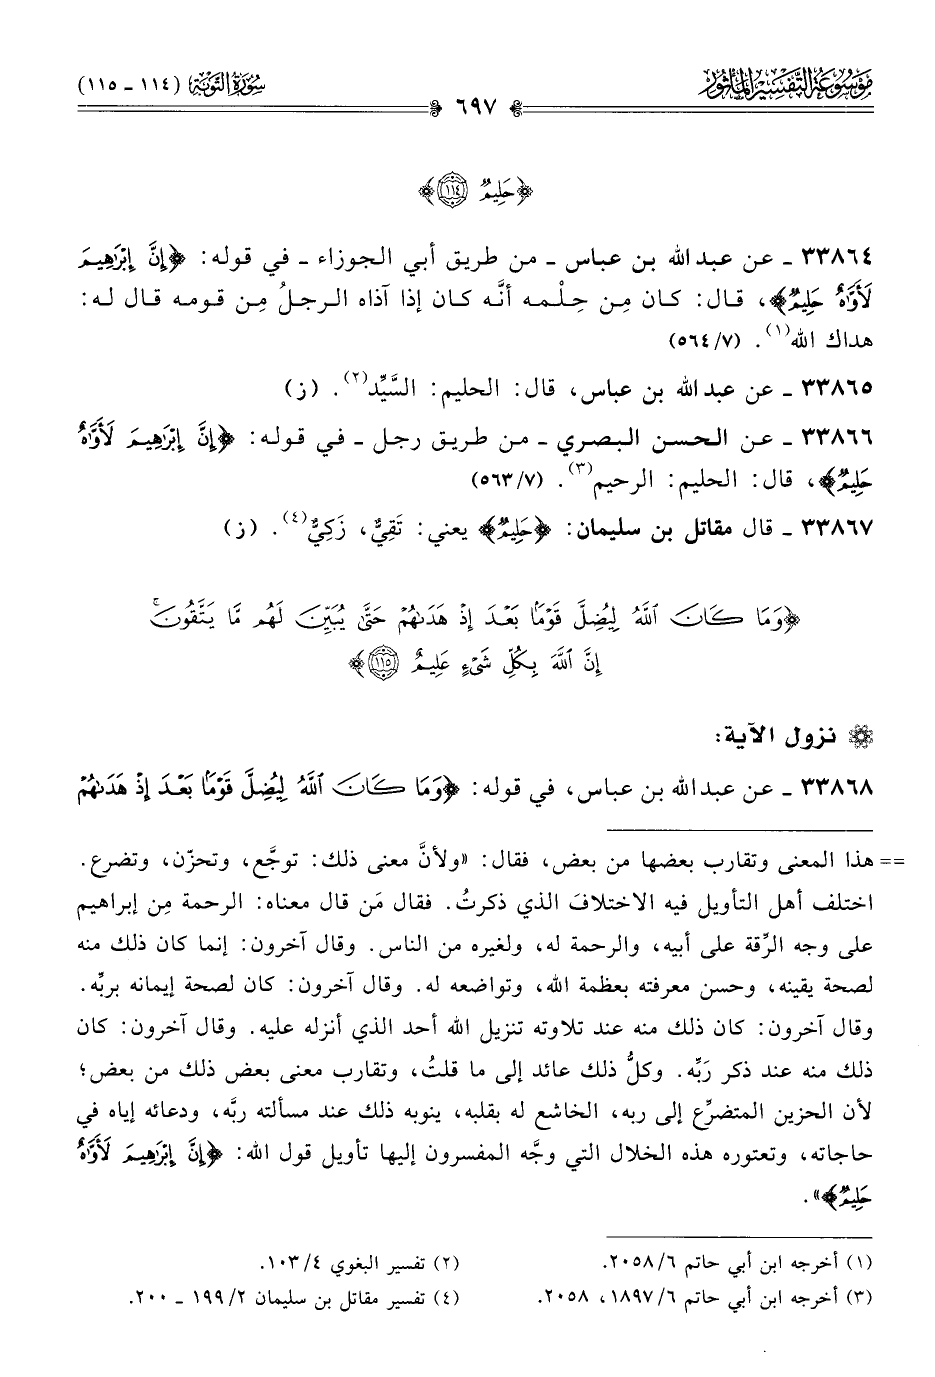 موسوعة التفسير المأثور
سورة التوبة (١١٤ - ١١٥)
٦٩٧
﴿حَلِيمٌ ١١٤﴾
٣٣٨٦٤ ـ عن عبد الله بن عباس ـ من طريق أبي الجوزاء ـ في قوله: ﴿إِنَّ إِبْرَاهِيمَ
لَأَوَّاهٌ حَلِيمٌ﴾، قال: كان مِن حِلْمه أنَّه كان إذا آذاه الرجلُ مِن قومه قال له:
هداك الله(١). (٧/ ٥٦٤)
٣٣٨٦٥ ـ عن عبد الله بن عباس، قال: الحليم: السَّيِّد(٢). (ز)
٣٣٨٦٦ ـ عن الحسن البصري ـ من طريق رجل ـ في قوله: ﴿إِنَّ إِبْرَاهِيمَ لَأَوَّاهٌ
حَلِيمٌ﴾، قال: الحليم: الرحيم(٣). (٧/ ٥٦٣)
٣٣٨٦٧ ـ قال مقاتل بن سليمان: ﴿حَلِيمٌ﴾ يعني: تَقِيٌّ، زَكِيٌّ(٤). (ز)
﴿وَمَا كَانَ ٱللَّهُ لِيُضِلَّ قَوْمًۢا بَعْدَ إِذْ هَدَىٰهُمْ حَتَّىٰ يُبَيِّنَ لَهُم مَّا يَتَّقُونَۚ
إِنَّ ٱللَّهَ بِكُلِّ شَىْءٍ عَلِيمٌ ١١٥﴾
نزول الآية:
٣٣٨٦٨ ـ عن عبد الله بن عباس، في قوله: ﴿وَمَا كَانَ ٱللَّهُ لِيُضِلَّ قَوْمًۢا بَعْدَ إِذْ هَدَىٰهُمْ
== هذا المعنى وتقارب بعضها من بعض، فقال: «ولأنَّ معنى ذلك: توجَّع، وتحزّن، وتضرع.
اختلف أهل التأويل فيه الاختلافَ الذي ذكرتُ. فقال مَن قال معناه: الرحمة مِن إبراهيم
على وجه الرِّقة على أبيه، والرحمة له، ولغيره من الناس. وقال آخرون: إنما كان ذلك منه
لصحة يقينه، وحسن معرفته بعظمة الله، وتواضعه له. وقال آخرون: كان لصحة إيمانه بربِّه.
وقال آخرون: كان ذلك منه عند تلاوته تنزيل الله أحد الذي أنزله عليه. وقال آخرون: كان
ذلك منه عند ذكر رَبِّه. وكلُّ ذلك عائد إلى ما قلتُ، وتقارب معنى بعض ذلك من بعض؛
لأن الحزين المتضرِّع إلى ربه، الخاشع له بقلبه، ينوبه ذلك عند مسألته ربَّه، ودعائه إياه في
حاجاته، وتعتوره هذه الخلال التي وجَّه المفسرون إليها تأويل قول الله: ﴿إِنَّ إِبْرَاهِيمَ لَأَوَّاهٌ
حَلِيمٌ﴾».
(١) أخرجه ابن أبي حاتم ٦/ ٢٠٥٨.
(٢) تفسير البغوي ٤/ ١٠٣.
(٣) أخرجه ابن أبي حاتم ٦/ ١٨٩٧، ٢٠٥٨.
(٤) تفسير مقاتل بن سليمان ٢/ ١٩٩ ـ ٢٠٠.